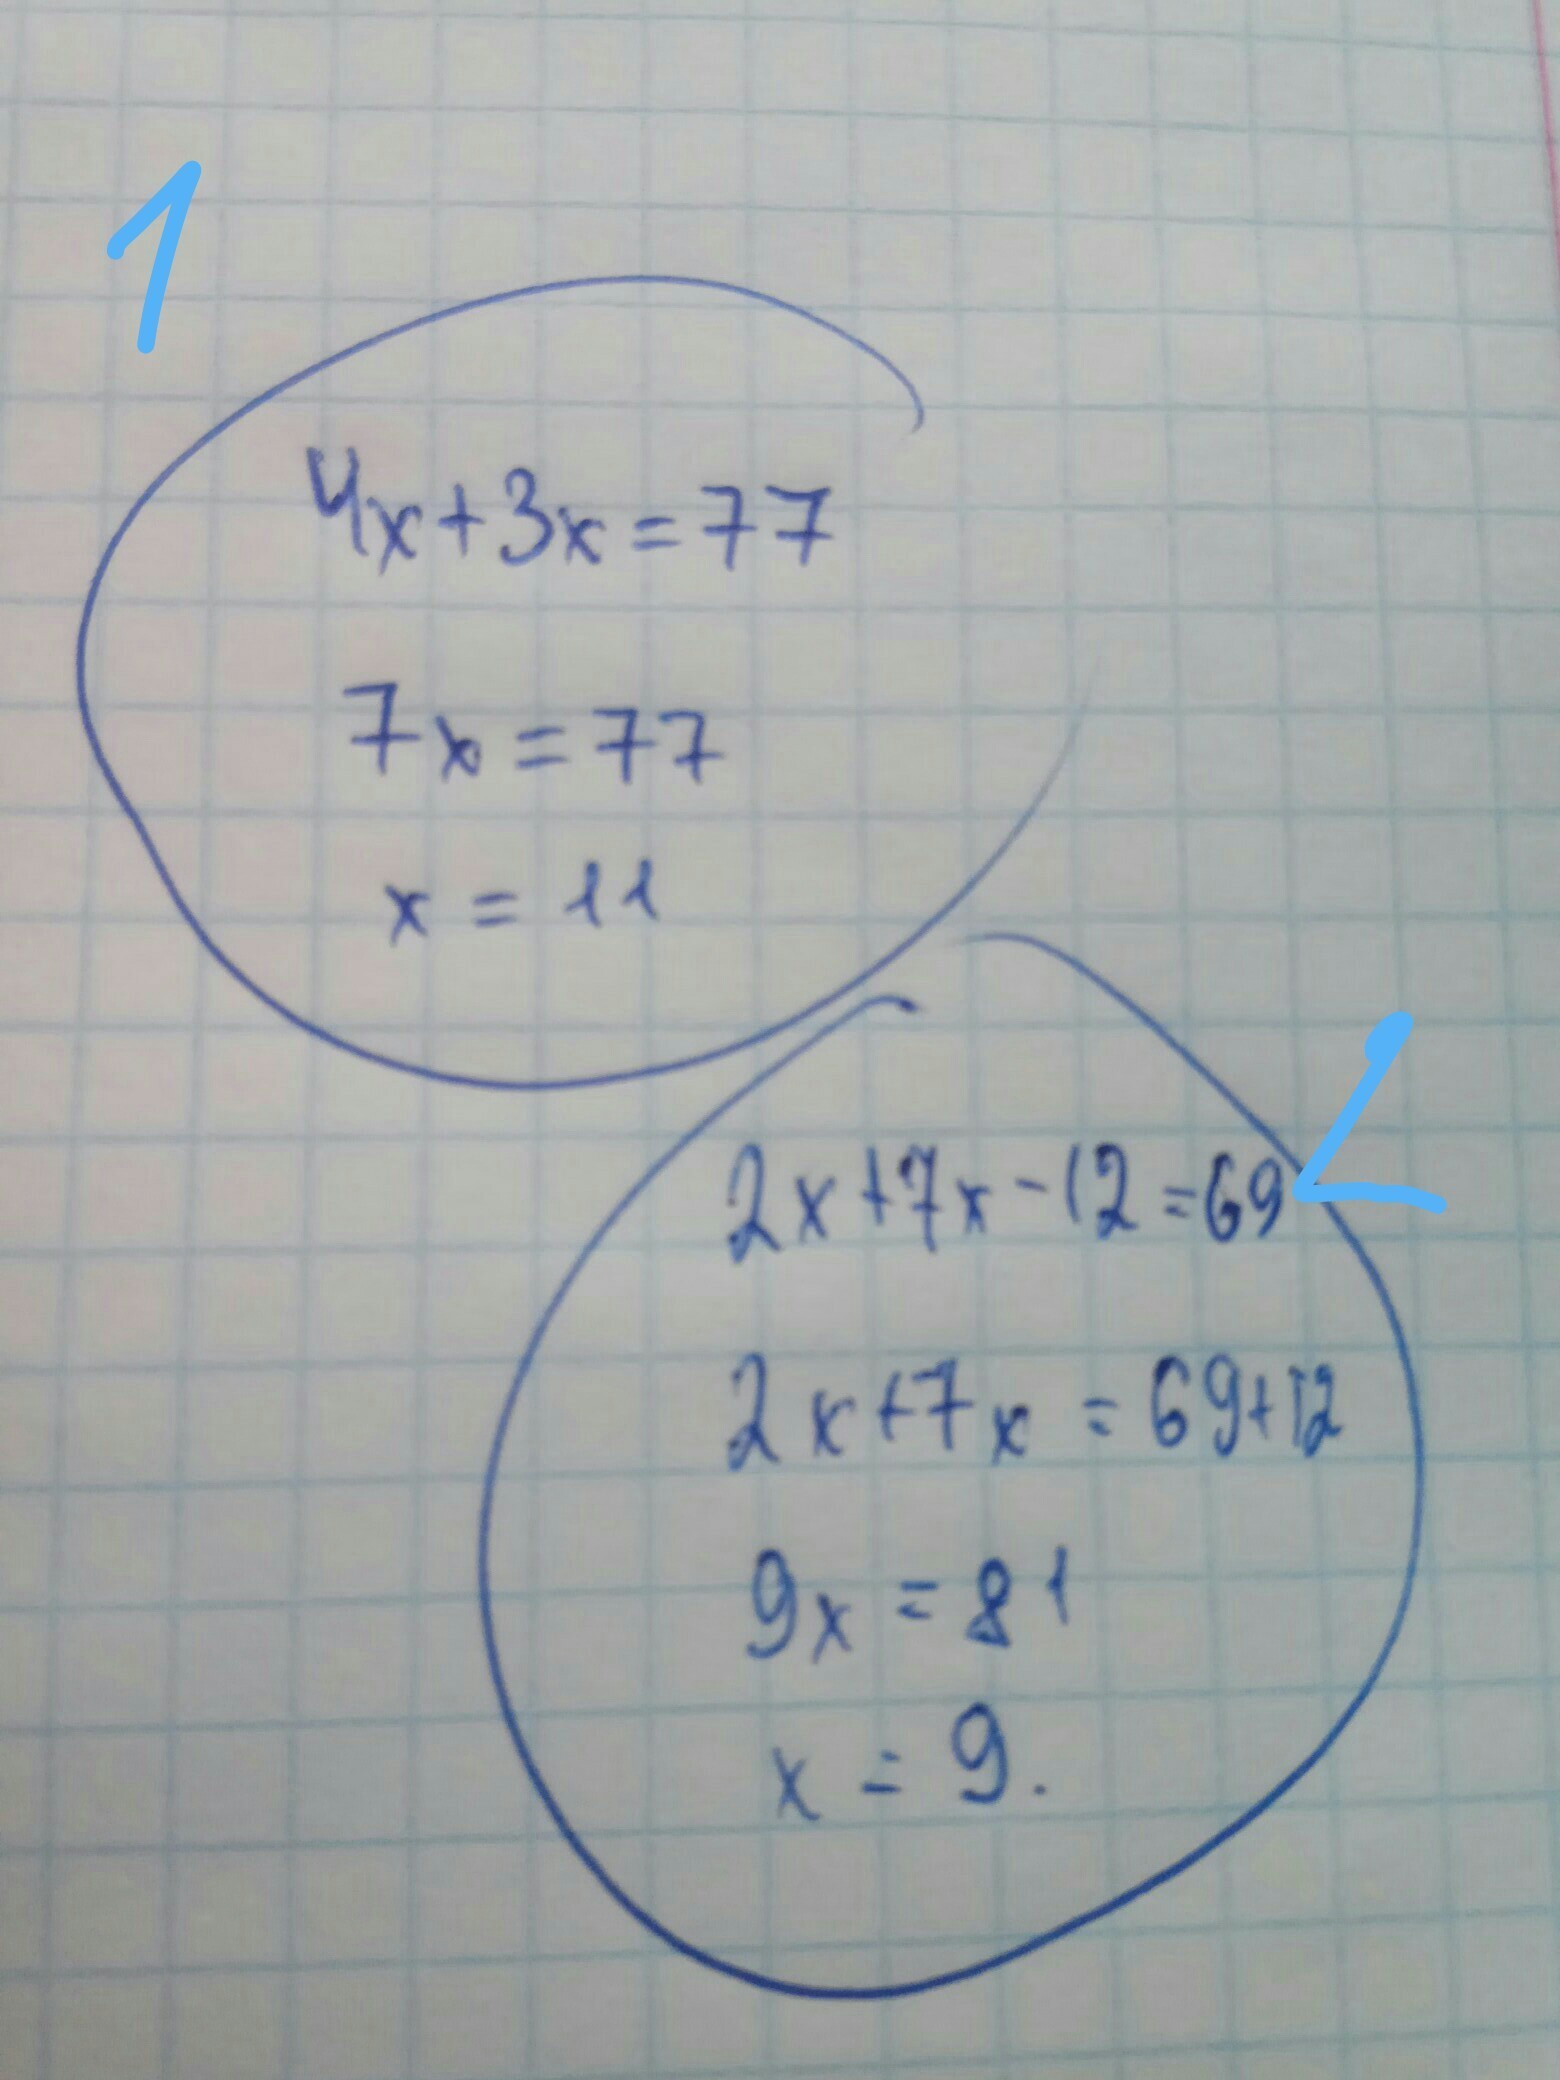 1
4x+3x=77
7x=77
x=11
2
2x+7x-12=69
2x+7x=69+12
9x=81
x=9.